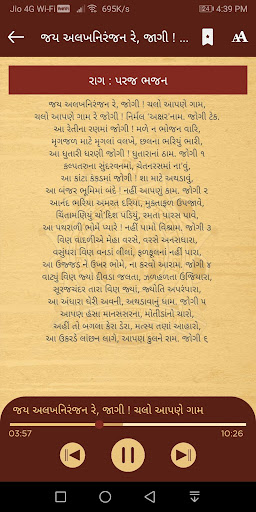 Jio 4G Wi-Fi 695K/s 4:39 PM
જય અલખનિરંજન રે, જાગી ! ...
રાગ : પરજ ભજન
જય અલખનિરંજન રે, જોગી ! ચલો આપણે ગામ,
ચલો આપણે ગામ રે જોગી ! નિર્મલ 'અક્ષર'નામ. જોગી ટેક.
આ રેતીના રણમાં જોગી ! મળે ન ભોજન વારિ,
મૃગજળ માટે મૃગલાં વલખે, છલના ભરિયું ભારી,
આ ધુતારી ધરણી જોગી ! ધુતારાનાં ઠામ. જોગી ૧
કલ્પતરુના સુંદરવનમાં, ચેતનરસમાં ના'વું,
આ કાંટા કંકડમાં જોગી ! શા માટે અથડાવું,
આ બંજર ભૂમિમાં બંદે ! નહીં આપણું કામ. જોગી ૨
આનંદ ભરિયા અમૃત દરિયા, મુક્તાફળ ઉપજાવે,
ચિંતામણિયું ચો'દિશ પડિયું, રમતાં પારસ પાવે,
આ પથરાળી ભોમે પ્યારે ! નહીં પામો વિશ્રામ. જોગી ૩
વિણ વાદળીએ મેહા વરસે, વરસે અનરાધારા,
વસુંધરા વિણ વનડાં લીલાં, ફળફૂલનાં નહીં પારા,
આ ઉજ્જડ ને ઉખર ભોમે, ના કરવો આરામ. જોગી ૪
વાટ્યું વિણ જ્યાં દીવડા જલતા, ઝળહળતા ઉજિયારા,
સૂરજચંદર તારા વિણ જ્યાં, જ્યોતિ અપરંપારા,
આ અંધારા ઘેરી અવની, અથડાવાનું ધામ. જોગી ૫
આપણ હંસા માનસસરના, મોતીડાંનો ચારો,
અહીં તો બગલા કેરા ડેરા, મત્સ્ય તણાં આહારો,
આ ઉકરડે લાંછન લાગે, આપણ કુલને રામ. જોગી ૬
જય અલખનિરંજન રે, જાગી ! ચલો આપણે ગામ
03:57 10:26